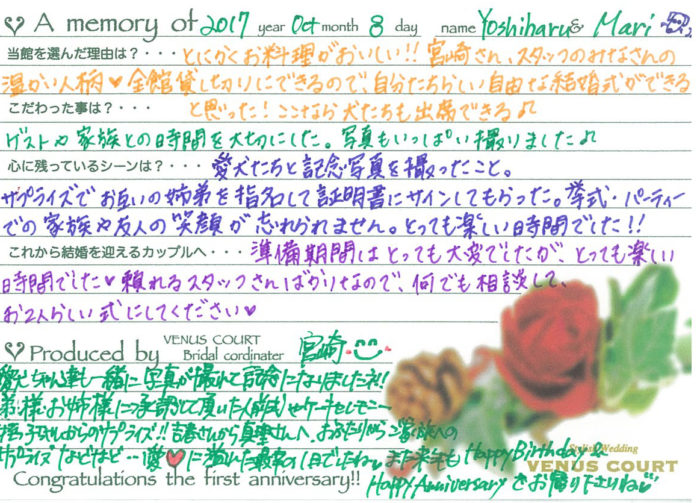 A memory of 2017 year Oct month 8 day name Yoshiharu & Mari
当館を選んだ理由は?・・・とにかくお料理がおいしい!! 宮崎さん、スタッフのみなさんの
温かい人柄♥ 全館貸しきりにできるので、自分たちらしい自由な結婚式ができる
こだわった事は?・・・ と思った! ここなら犬たちも出席できる♫
ゲストや家族との時間を大切にした。写真もいっぱい撮りました♫
心に残っているシーンは?・・・ 愛犬たちと記念写真を撮ったこと。
サプライズでお互いの姉弟を指名して証明書にサインしてもらった。挙式・パーティー
での家族や友人の笑顔が忘れられません。とっても楽しい時間でした!!
これから結婚を迎えるカップルへ・・・ 準備期間はとっても大変でしたが、とっても楽しい
時間でした♥ 頼れるスタッフさんばかりなので、何でも相談して、
お2人らしい式にしてください♥
Produced by VENUS COURT Bridal cordinater 宮崎
愛犬ちゃん達も一緒に写真が撮れて記念になりましたネ!
弟様・お姉様に承認して頂いた人前式やケーキセレモニー
さんからのサプライズ!! さんから さんへ、おふたりからご家族への
サプライズなどなど…愛♥に溢れた最幸の1日でしたね また来年も Happy Birthday &
Stylish Wedding
VENUS COURT
Congratulations the first anniversary!! Happy Anniversary でお帰り下さいね♡